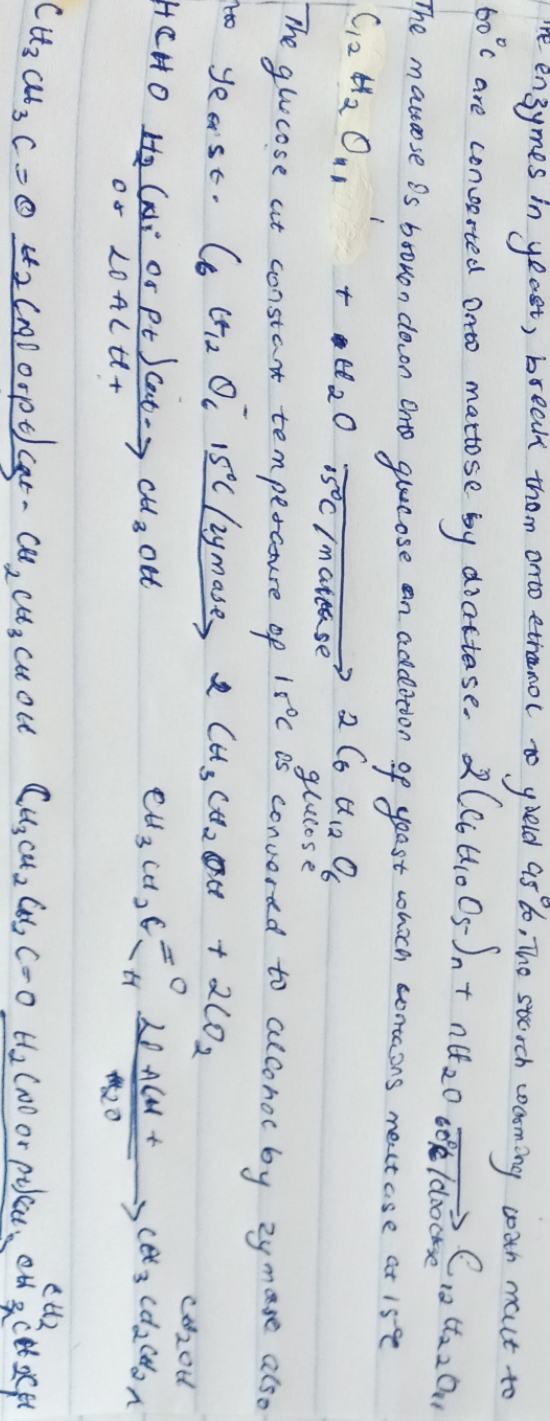 enzymes in yeast, break them into ethanol to yield 95%. The starch warming with malt to
60°C are converted into maltose by diastase. 2(C6H10O5)n + nH2O 60°C/diastase → C12H22O11
The maltose is broken down into glucose on addition of yeast which contains maltase at 15°C
C12H2O11 + H2O 15°C/maltase → 2C6H12O6
glucose
The glucose at constant temperature of 15°C is converted to alcohol by zymase also
yeast. C6H12O6 15°C/zymase → 2CH3CH2OH + 2CO2
HCHO H2(Ni or pt)cat → CH3OH CH3CH2C=O
H
or LiAlH4 H2O → CH3CH2CH2
CH2OH
CH3CH3C=O H2(Ni or pt)cat. CH2CH3CHOH CH3CH2CH3C=O H2(Ni or pt)cat
CH2